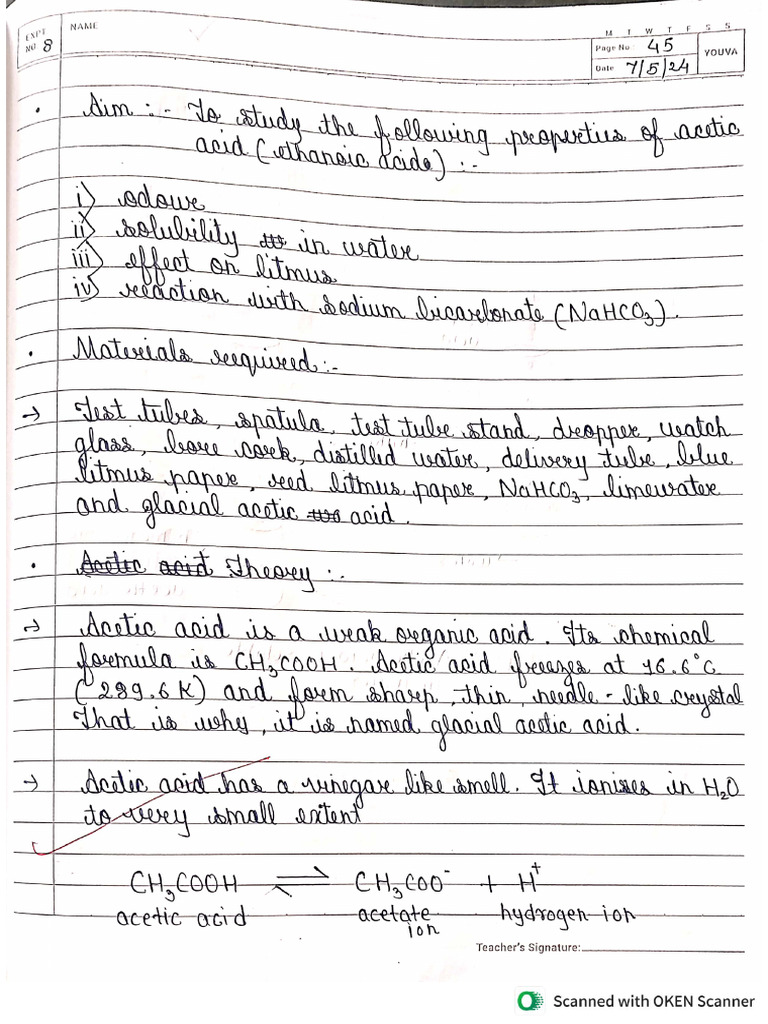 EXPT NO. 8
NAME
M T W T F S S
Page No.: 45
YOUVA
Date: 7/5/24
• Aim :- To study the following properties of acetic
acid (ethanoic acids) :-
i) odour
ii) solubility in water
iii) effect on litmus
iv) reaction with sodium bicarbonate (NaHCO₃).
• Materials required :-
→ Test tubes, spatula, test tube stand, dropper, watch
glass, bore cork, distillid water, delivery tube, blue
litmus paper, red litmus paper, NaHCO₃, limewater
and glacial acetic acid.
• Acetic acid Theory :-
→ Acetic acid is a weak organic acid. Its chemical
formula is CH₃COOH. Acetic acid freezes at 16.6°C
(289.6 K) and form sharp, thin, needle-like crystal
That is why, it is named glacial acetic acid.
→ Acetic acid has a vinegar like smell. It ionises in H₂O
to very small extent
CH₃COOH ⇌ CH₃COO⁻ + H⁺
acetic acid acetate ion hydrogen ion
Teacher's Signature:
Scanned with OKEN Scanner